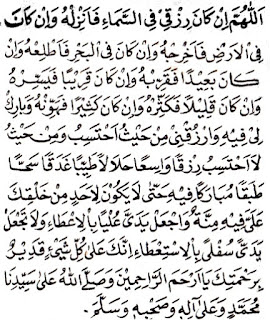 اَللّٰهُمَّ اِنْ كَانَ رِزْقِيْ فِي السَّمَاءِ فَاَنْزِلْهُ وَاِنْ كَانَ
فِي الْاَرْضِ فَاَخْرِجْهُ وَاِنْ كَانَ فِي الْبَحْرِ فَاَطْلِعْهُ وَاِنْ
كَانَ بَعِيْدًا فَقَرِّبْهُ وَاِنْ كَانَ قَرِيْبًا فَيَسِّرْهُ
وَاِنْ كَانَ قَلِيْلًا فَكَثِّرْهُ وَاِنْ كَانَ كَثِيْرًا فَهَوِّنْهُ وَبَارِكْ
لِيْ فِيْهِ وَارْزُقْنِيْ مِنْ حَيْثُ اَحْتَسِبُ وَمِنْ حَيْثُ
لَا اَحْتَسِبُ رِزْقًا وَاسِعًا حَلَالًا طَيِّبًا غَدَقًا سَحًّا
طَبَقًا مُبَارَكًا فِيْهِ حَتّٰى لَا يَكُوْنَ لِاَحَدٍ مِنْ خَلْقِكَ
عَلَيَّ فِيْهِ مِنَّةٌ وَاجْعَلْ يَدَيَّ عُلْيًا بِالْاِعْطَاءِ وَلَا تَجْعَلْ
يَدَيَّ سُفْلًى بِالْاِسْتِعْطَاءِ اِنَّكَ عَلٰى كُلِّ شَيْءٍ قَدِيْرٌ
بِرَحْمَتِكَ يَااَرْحَمَ الرَّاحِمِيْنَ وَصَلَّى اللهُ عَلٰى سَيِّدِنَا
مُحَمَّدٍ وَعَلٰى اٰلِهِ وَصَحْبِهِ وَسَلَّمَ.